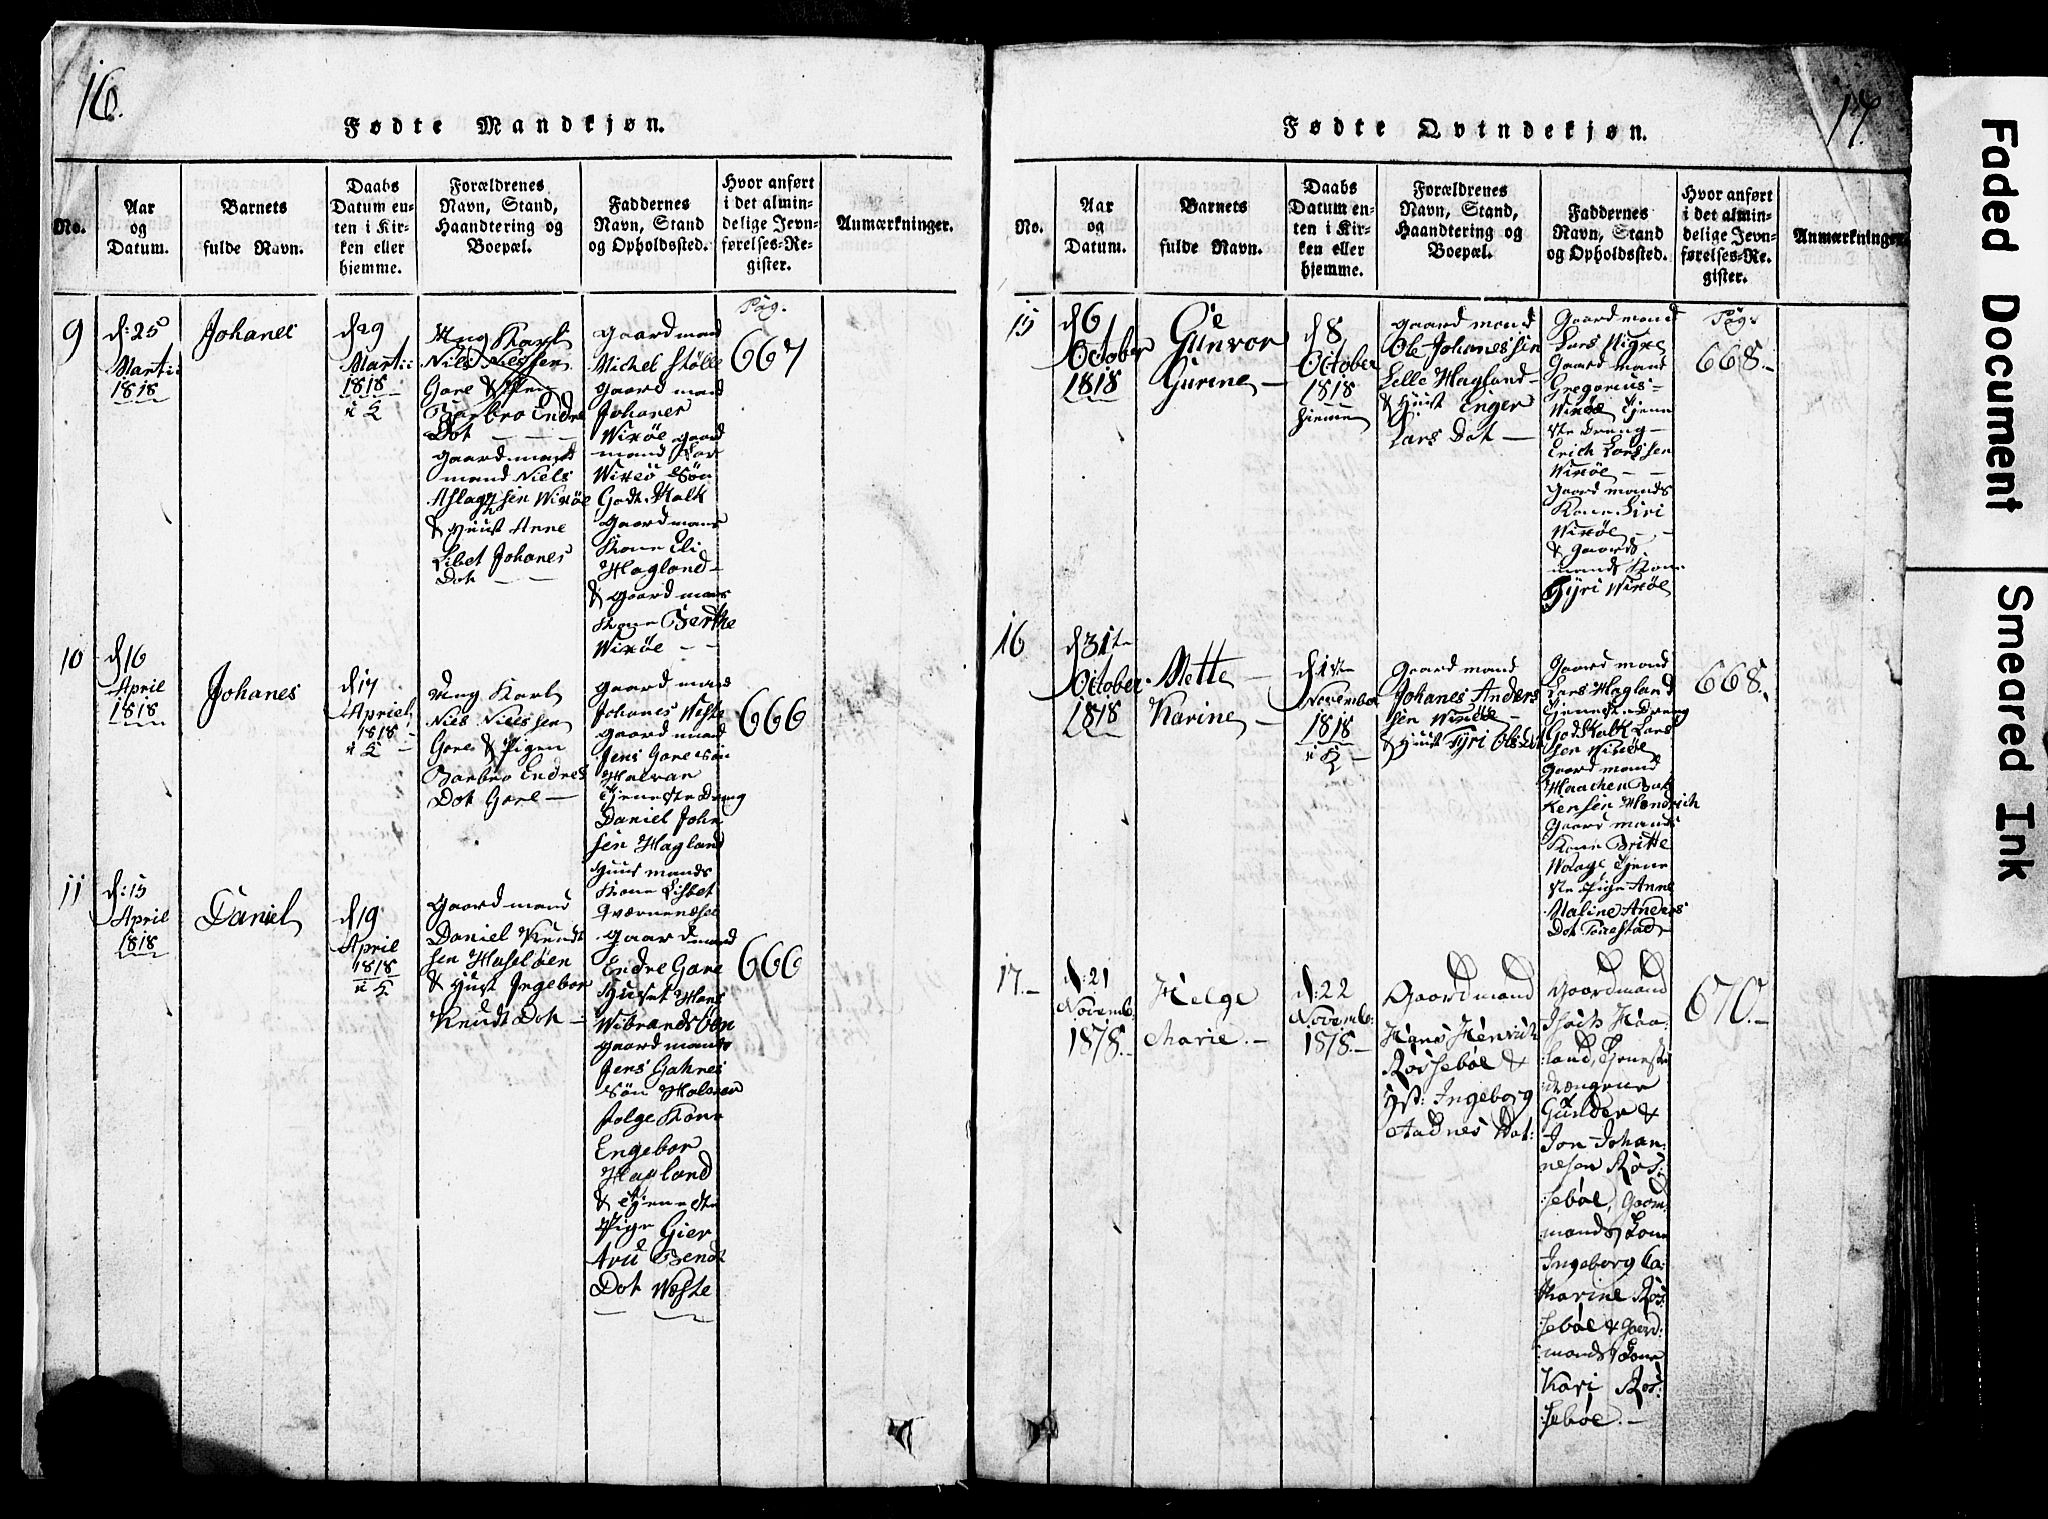 16.
Fødte Mandkjøn.
No.
Aar
og
Datum.
Barnets
fulde Navn.
Daabs
Datum en-
ten i Kir-
ken eller
hjemme.
Forældrenes
Navn, Stand,
Haandtering og
Boepæl.
Faddernes
Navn, Stand
og Opholdssted.
Hvor anført
i det almin-
delige Jevn-
førelses-Re-
gister.
Anmærkninger.
9
d: 25
Marti:
1818
Johanes
d 29
Marti:
1818
i K
Ung Karl
Niels Nielssen
Gare & Pigen
Barbro Endre
Dot
gaardmand
mand Niels
Aslagsen Wixøe
& Hust Anne
Lisbet Johanes
Dot
gaard mand
Michel Stølle
gaard mand
Johanes
Wixøe gaard
mand
Wixøe Søn
Godtskalk
gaard mans
Kone Eli
Hagland
& gaard mans
Kone Berthe
Wixøe
Pag.
667
10
d 16
April
1818
Johanes
d 17
April
1818
i K
Ung Karl
Niels Nielssen
Gare & Pigen
Barbro Endres
Dot Gare
gaard mand
Johanes Weste
gaard mand
Jens Gare Søn
Halvar
Tjeneste Dreng
Daniel John
sen Hagland
Huus mands
Kone Lisbet
Qværnenæset
666
11
d: 15
April
1818
Daniel
d 19
April
1818
i K
Gaard mand
Daniel Knudt
sen Haseløen
& Hust Ingebor
Knudt Dot
gaard mand
Endre Gare
Huset Hans
Wibrandsøen
gaard mands
Jens Gahres
Søn Halvar
Kone
Engebor
Hagland
& Tjeneste
Pige Gier
tru Bendt
Dot Weste
666
17.
Fødte Qvindekjøn.
No.
Aar
og
Datum.
Barnets
fulde Navn.
Daabs
Datum en-
ten i Kir-
ken eller
hjemme.
Forældrenes
Navn, Stand,
Haandtering og
Boepæl.
Faddernes
Navn, Stand
og Opholdssted.
Hvor anført
i det almin-
delige Jevn-
førelses-Re-
gister.
Anmærkninger
15
d 6
October
1818
Gunvor
Gurine
d 8
October
1818
hjemme
gaard mand
Ole Johanessen
Lelle Hagland
& Hust Enger
Lars Dot
Gaard mand
Lars
Gaard mand
Gregorius
Wixøe Tjene
ste Dreng
Erich Larssen
Wixøe
Gaard mands
Kone Siri
Wixøe
& Gaards
mands Kone
Tyri Wixøe
Pag.
668.
16
d 31te
October
1818
Mette
Karine
d 1ste
November
1818
i K
gaard mand
Johanes Anders
sen Wixøe
& Hust Tyri Ols Dot
Gaard mand
Lars Hagland
Tjeneste Dreng
Godskalk Lars
sen Wixøe
Gaard mand
Haachen Bak
kensen Hendrich
Gaard mands
Kone Britte
Waage Tjene
ste Pige Anne
Maline Anders
Dot Tørestad
668.
17.
d: 21
Novemb:
1818.
Helge
Marie.
d: 22
Novemb:
1818.
Gaardmand
Hans Henrich
Røssebøe &
Hst: Ingeborg
Aadnes Dot:
Gaardmand
Isach Haa-
land, Tjeneste
drængene
Gunder &
Jon Johan-
nesen Røs:
sebøe, Gaard
mands Kone
Ingeborg Ca-
tharine Røs:
sebøe & Gaard:
mands Kone
Kari Røs:
sebøe.
670.
Faded Document
Smeared Ink